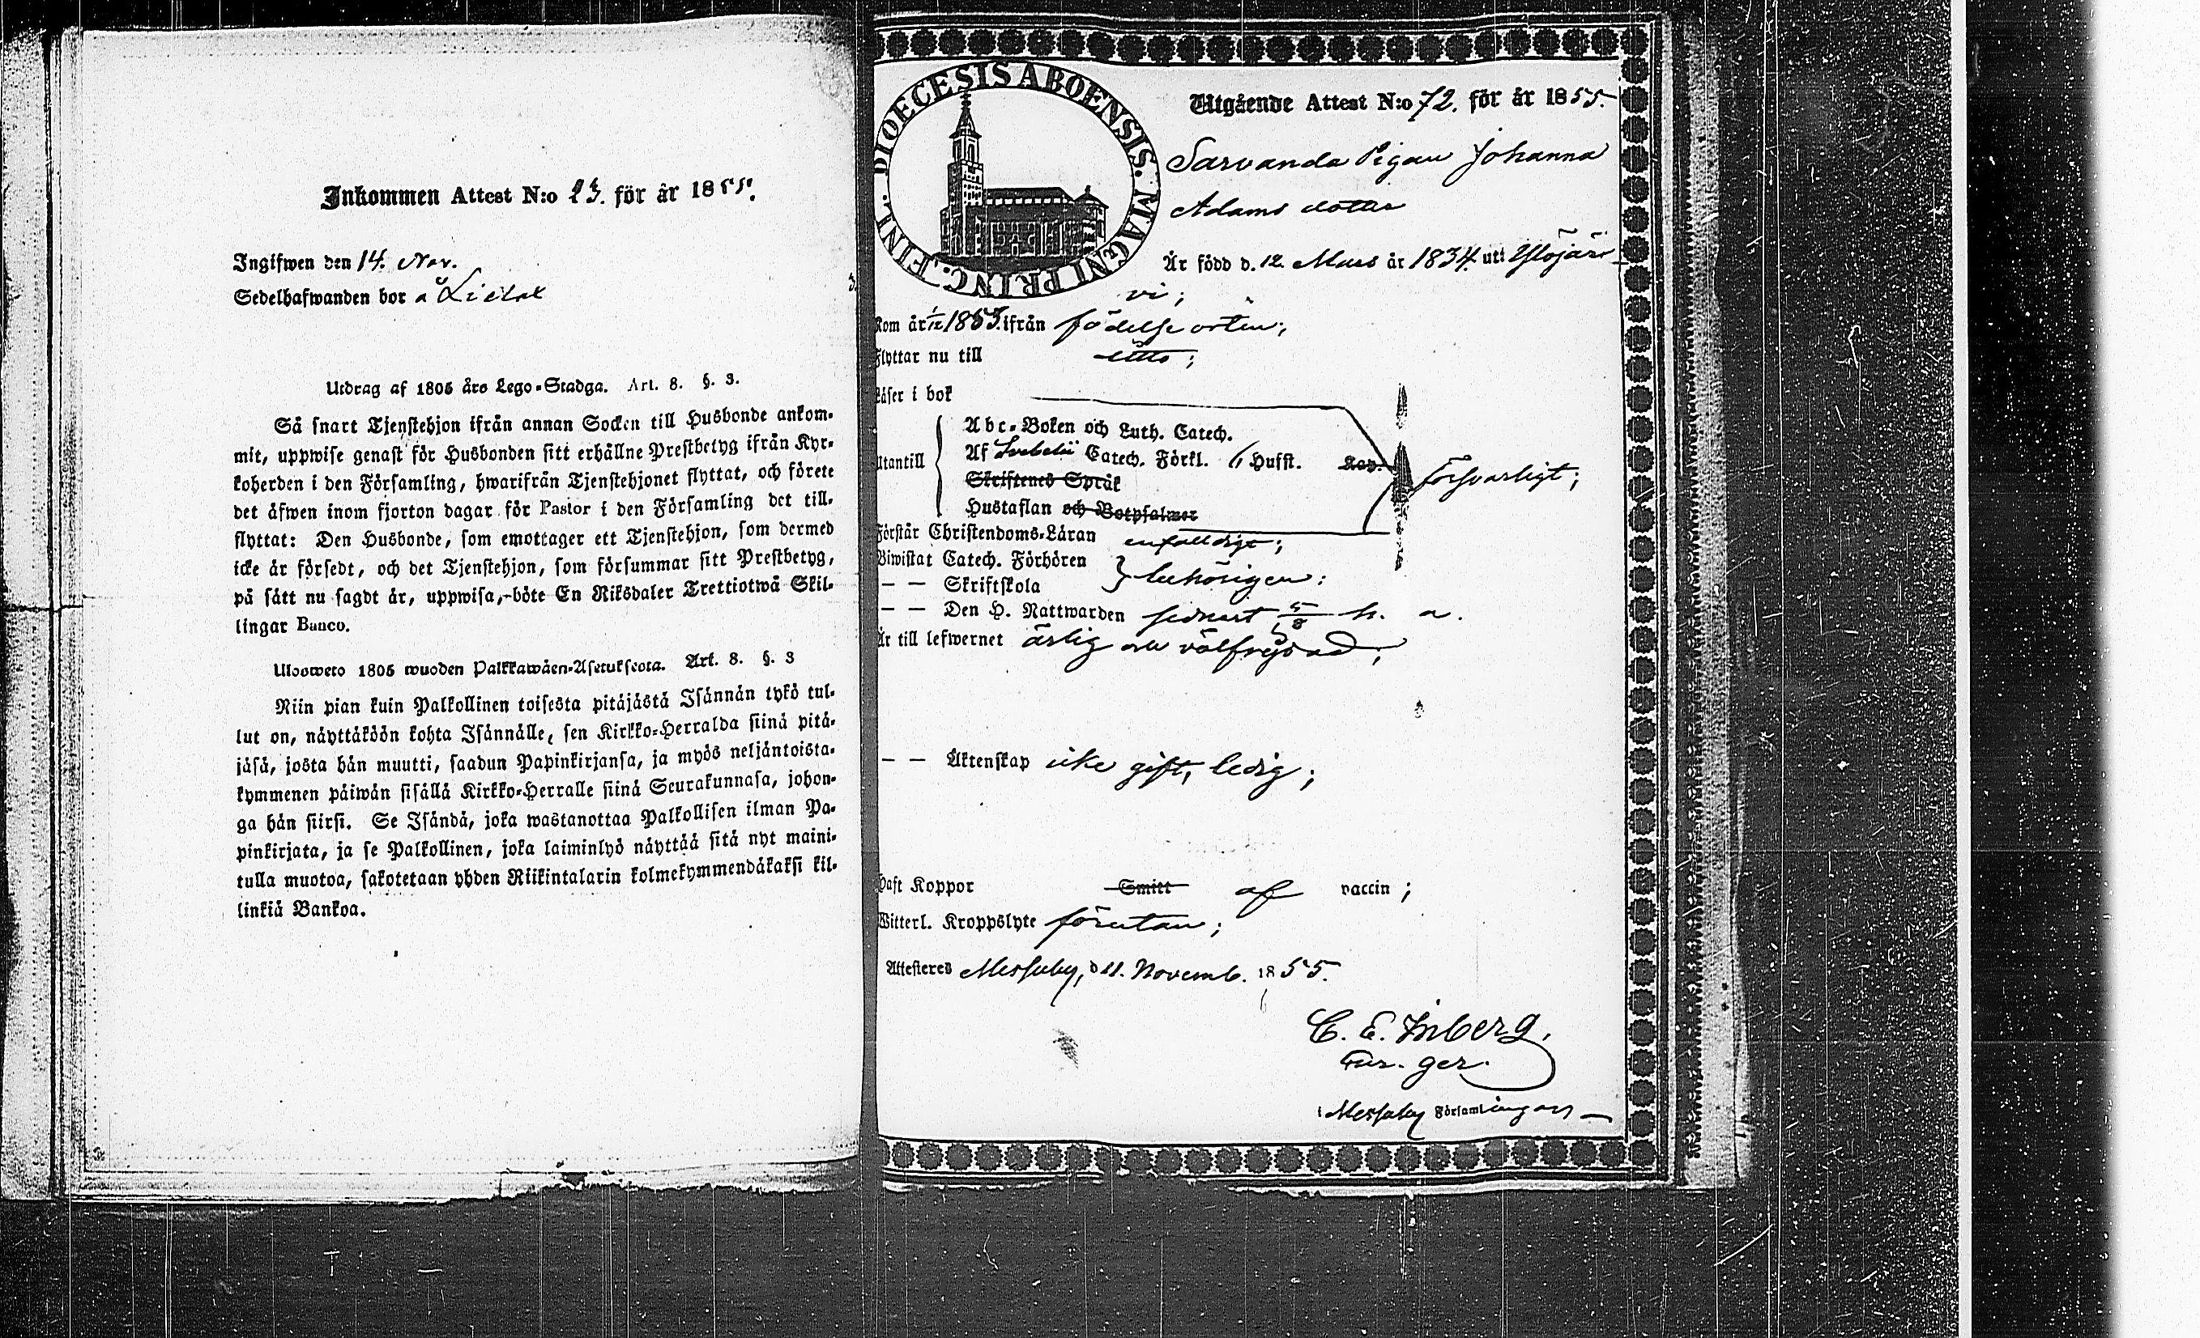 Inkommen Attest N:o 23. för år 1855.
Ingifwen den 14. Nov.
Sedelhafwanden bor å Lielax
Utdrag af 1805 års Lego-Stadga. Art. 8. §. 3.
Så snart Tjenstehjon ifrån annan Socken till Husbonde ankom-
mit, uppwise genast för Husbonden sitt erhållne Prestbetyg ifrån Kyr-
koherden i den Församling, hwarifrån Tjenstehjonet flyttat, och förete
det äfwen inom fjorton dagar för Pastor i den Församling det till-
flyttat: Den Husbonde, som emottager ett Tjenstehjon, som dermed
icke är försedt, och det Tjenstehjon, som försummar sitt Prestbetyg,
på sätt nu sagdt är, uppwisa, böte En Riksdaler Trettiotwå Skil-
lingar Banco.
Ulosweto 1805 wuoden Palkkawäen-Asetuksesta. Art. 8. §. 3
Niin pian kuin Palkollinen toisesta pitäjästä Isännän tykö tul-
lut on, näyttäköön kohta Isännälle, sen Kirkko-Herralda siinä pitä-
jäsä, josta hän muutti, saadun Papinkirjansa, ja myös neljäntoista-
kymmenen päiwän sisällä Kirkko-Herralle siinä Seurakunnasa, johon-
ga hän siirsi. Se Isändä, joka wastanottaa Palkollisen ilman Pa-
pinkirjata, ja se Palkollinen, joka laiminlyö näyttää sitä nyt maini-
tulla muotoa, sakotetaan yhden Riikintalarin kolmekymmendäkaksi kil-
linkiä Bankoa.
DIOECESIS ABOENSIS. MAGNI PRINC. FINL.
Utgående Attest N:o 72. för år 1855.
Sarvanda Pigan Johanna
Adams dotter
Är född d. 12. Mars år 1834. uti Ylöjär-
vi;
Kom år 1/12 1853. ifrån födelse orten;
Flyttar nu till ditto;
Läser i bok
Utantill
Abc-Boken och Luth. Catech.
Af Svebelii Catech. Förkl. 6 Hufst. Kap.
Skriftenes Språk
Hustaflan och Botpsalmer
försvarligt;
Förstår Christendoms-Läran enfalldigt;
Biwistat Catech. Förhören
— — Skriftskola
behörigen:
— — Den H. Nattwarden sednast 5/8 h. a.
Är till lefwernet ärlig och välfrejdad;
— — Äktenskap icke gift, ledig;
Haft Koppor Smitt af vaccin;
Witterl. Kroppslyte förutan;
Attesteres Messuby, d 11. Novemb. 1855.
C. E. Inberg,
Cur. ger.
i Messuby Församlingar